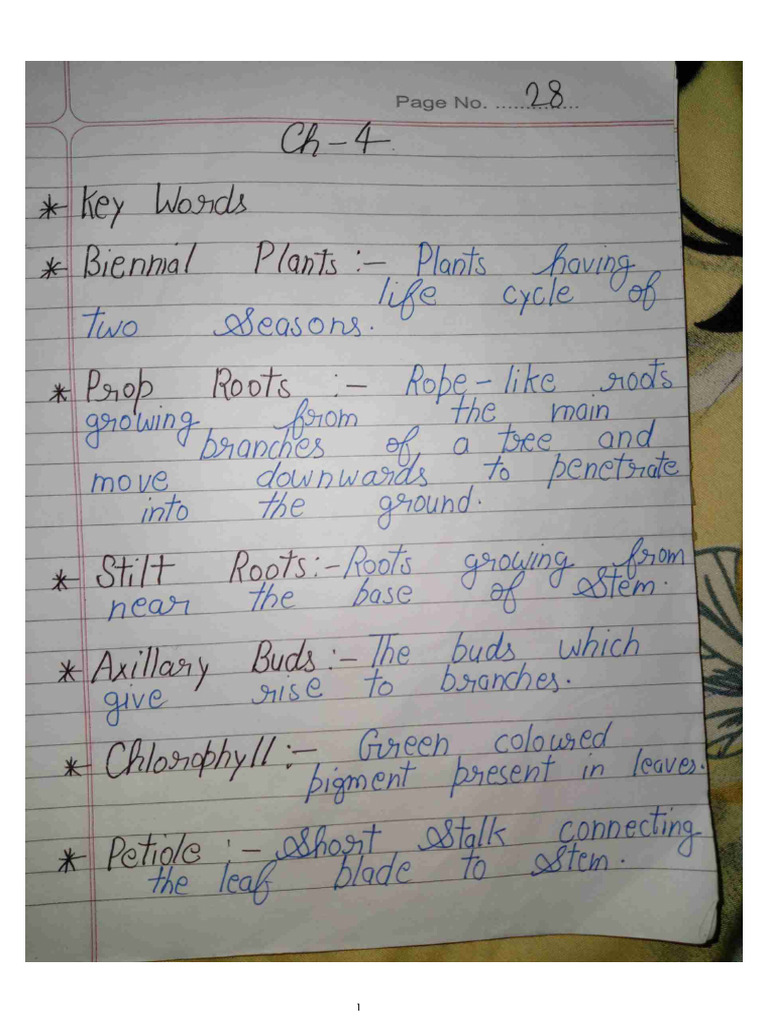 Page No. 28
Ch-4
* Key Words
* Biennial Plants :- Plants having
life cycle of
two seasons.
* Prop Roots :- Rope-like roots
growing from the main
branches of a tree and
move downwards to penetrate
into the ground.
* Stilt Roots :- Roots growing from
near the base of stem.
* Axillary Buds :- The buds which
give rise to branches.
* Chlorophyll :- Green coloured
pigment present in leaves.
* Petiole :- Short stalk connecting
the leaf blade to stem.
1